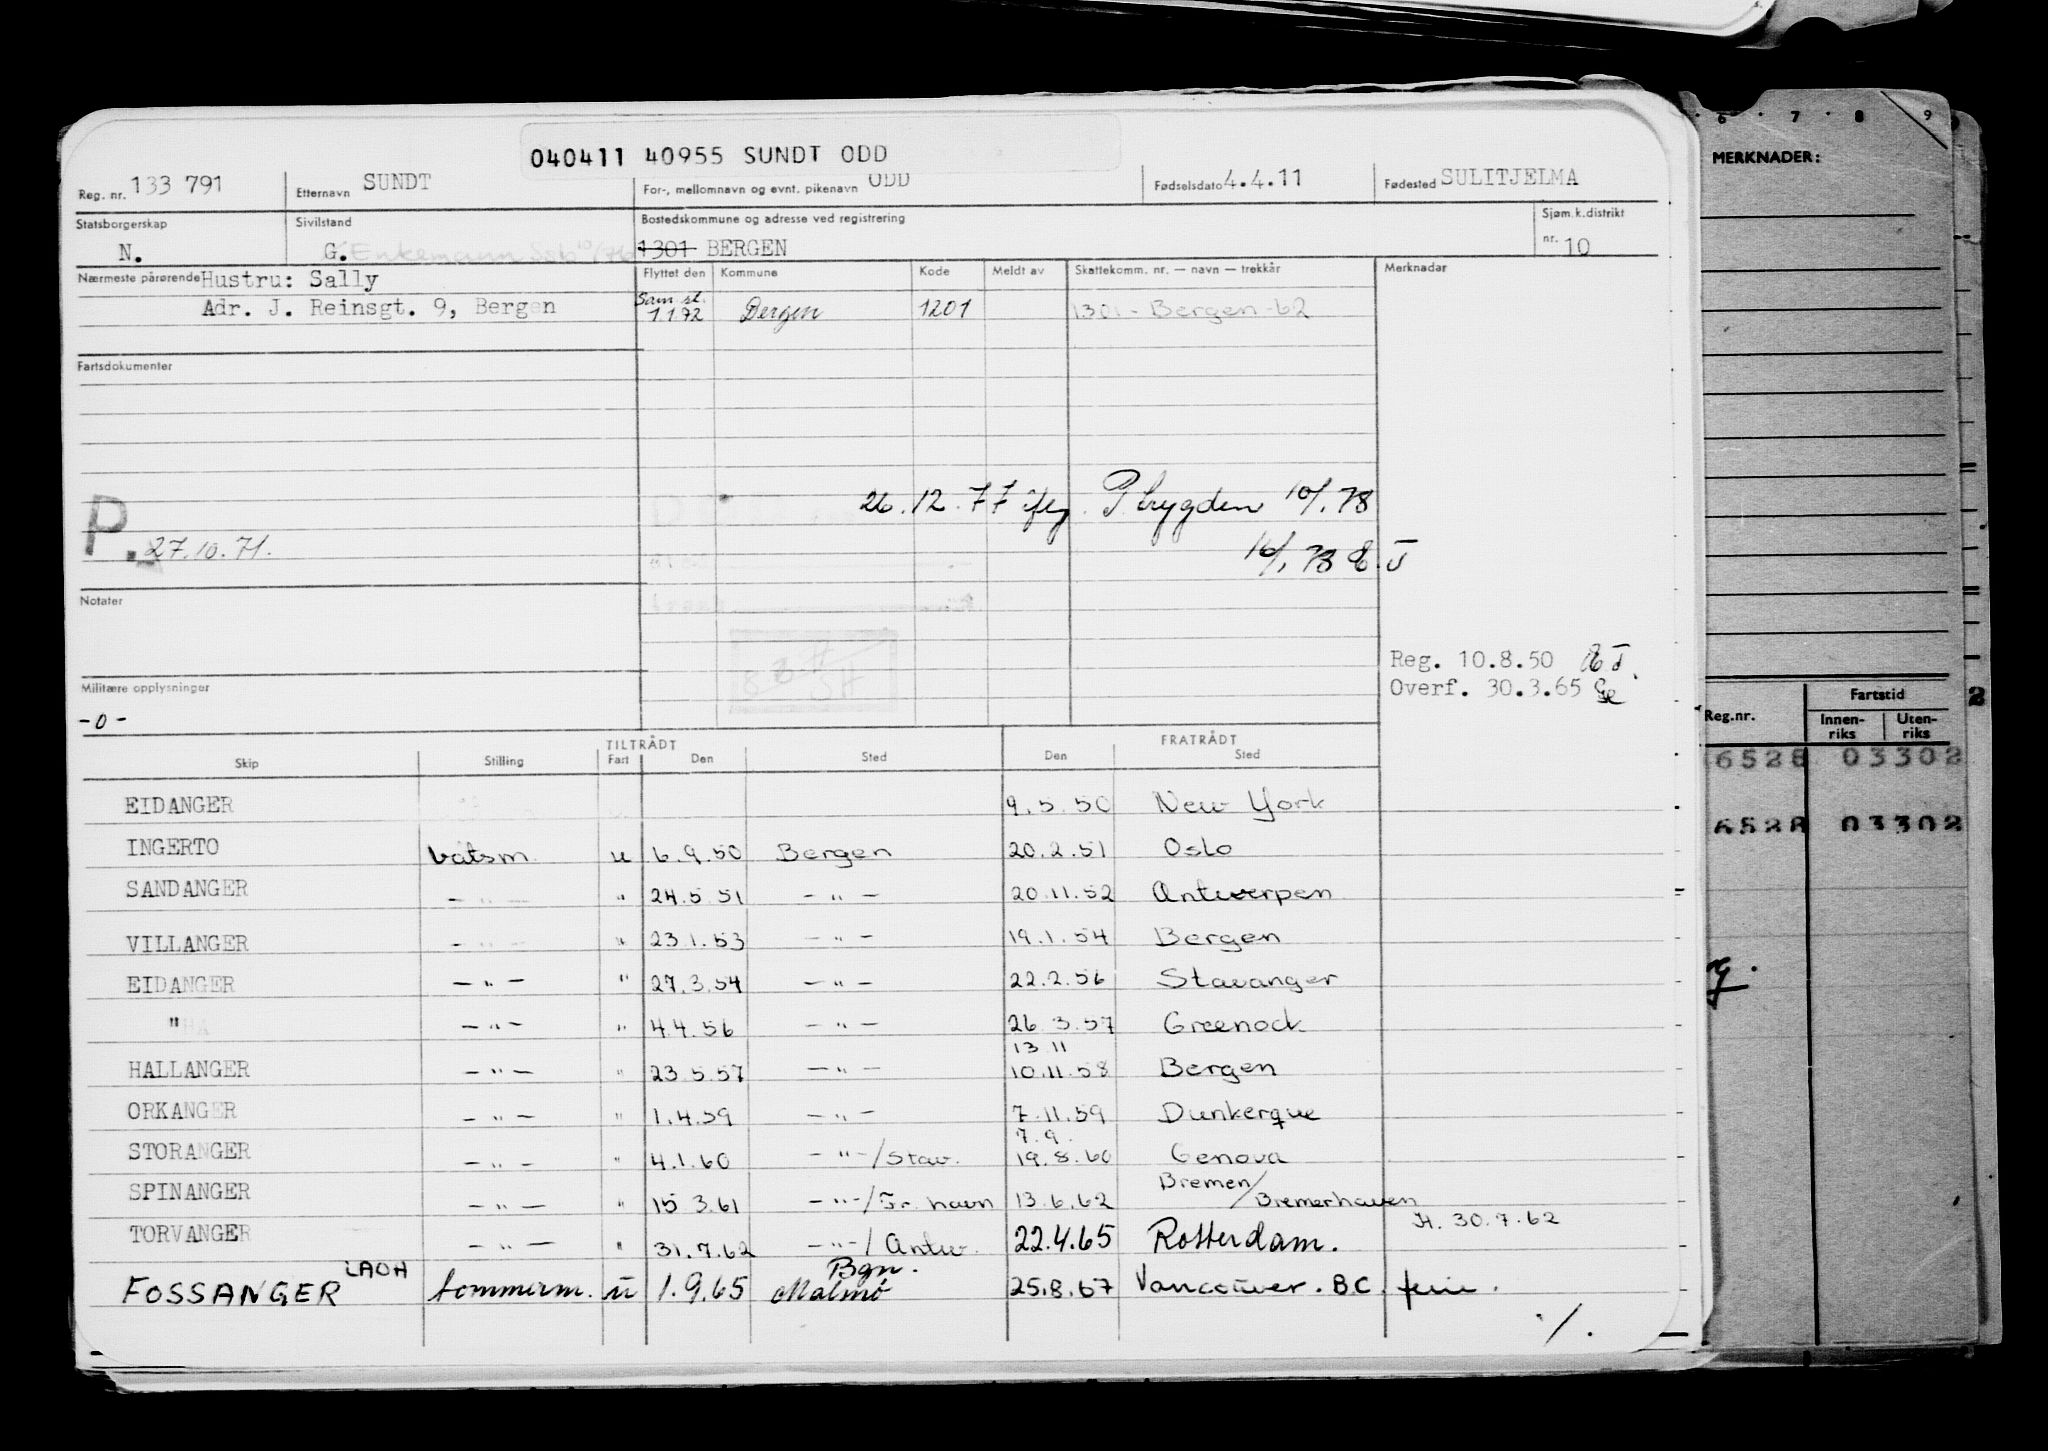 040411 40955 SUNDT ODD
Reg. nr. 133 791 Etternavn SUNDT For-, mellomnavn og evnt. pikenavn ODD Fødselsdato 4.4.11 Fødested SULITJELMA
Statsborgerskap Sivilstand Bostedskommune og adresse ved registrering Sjøm.k.distrikt
N. G. Enkemann 1301 BERGEN nr. 10
Nærmeste pårørende Hustru: Sally Flyttet den Kommune Kode Meldt av Skattekomm. nr. — navn — trekkår Merknadar
Adr. J. Reinsgt. 9, Bergen Sam. st. 1.1.72 Bergen 1201 1301 - Bergen - 62
Fartsdokumenter
26.12.77 P. trygden 10/1.78
P. 27.10.71.
16/1.78
Notater
Reg. 10.8.50
Militære opplysninger Overf. 30.3.65
-0-
TILTRÅDT FRATRÅDT
Skip Stilling Fart Den Sted Den Sted
EIDANGER 9.5.50 New York
INGERTO båtsm. u 6.9.50 Bergen 20.2.51 Oslo
SANDANGER -"- " 24.5.51 -"- 20.11.52 Antwerpen
VILLANGER -"- " 23.1.53 -"- 19.1.54 Bergen
EIDANGER -"- " 27.3.54 -"- 22.2.56 Stavanger
" -"- " 4.4.56 -"- 26.3.57 Greenock
13 11
HALLANGER -"- " 23.5.57 -"- 10.11.58 Bergen
ORKANGER -"- " 1.4.59 -"- 7.11.59 Dunkerque
7.9.
STORANGER -"- " 4.1.60 -"-/Stav. 19.8.60 Genova
SPINANGER -"- " 15.3.61 -"-/Fr. havn 13.6.62 Bremen/Bremerhaven
H. 30.7.62
TORVANGER -"- " 31.7.62 -"-/Antw. 22.4.65 Rotterdam.
Bgn.
FOSSANGER LAOH tømmerm. u 1.9.65 Malmö 25.8.67 Vancouver. B.C. ferie.
./.
6 . 7 . 8 9
MERKNADER:
Reg.nr. Fartstid 2
Innen-riks Uten-riks
6528 03302
6528 03302